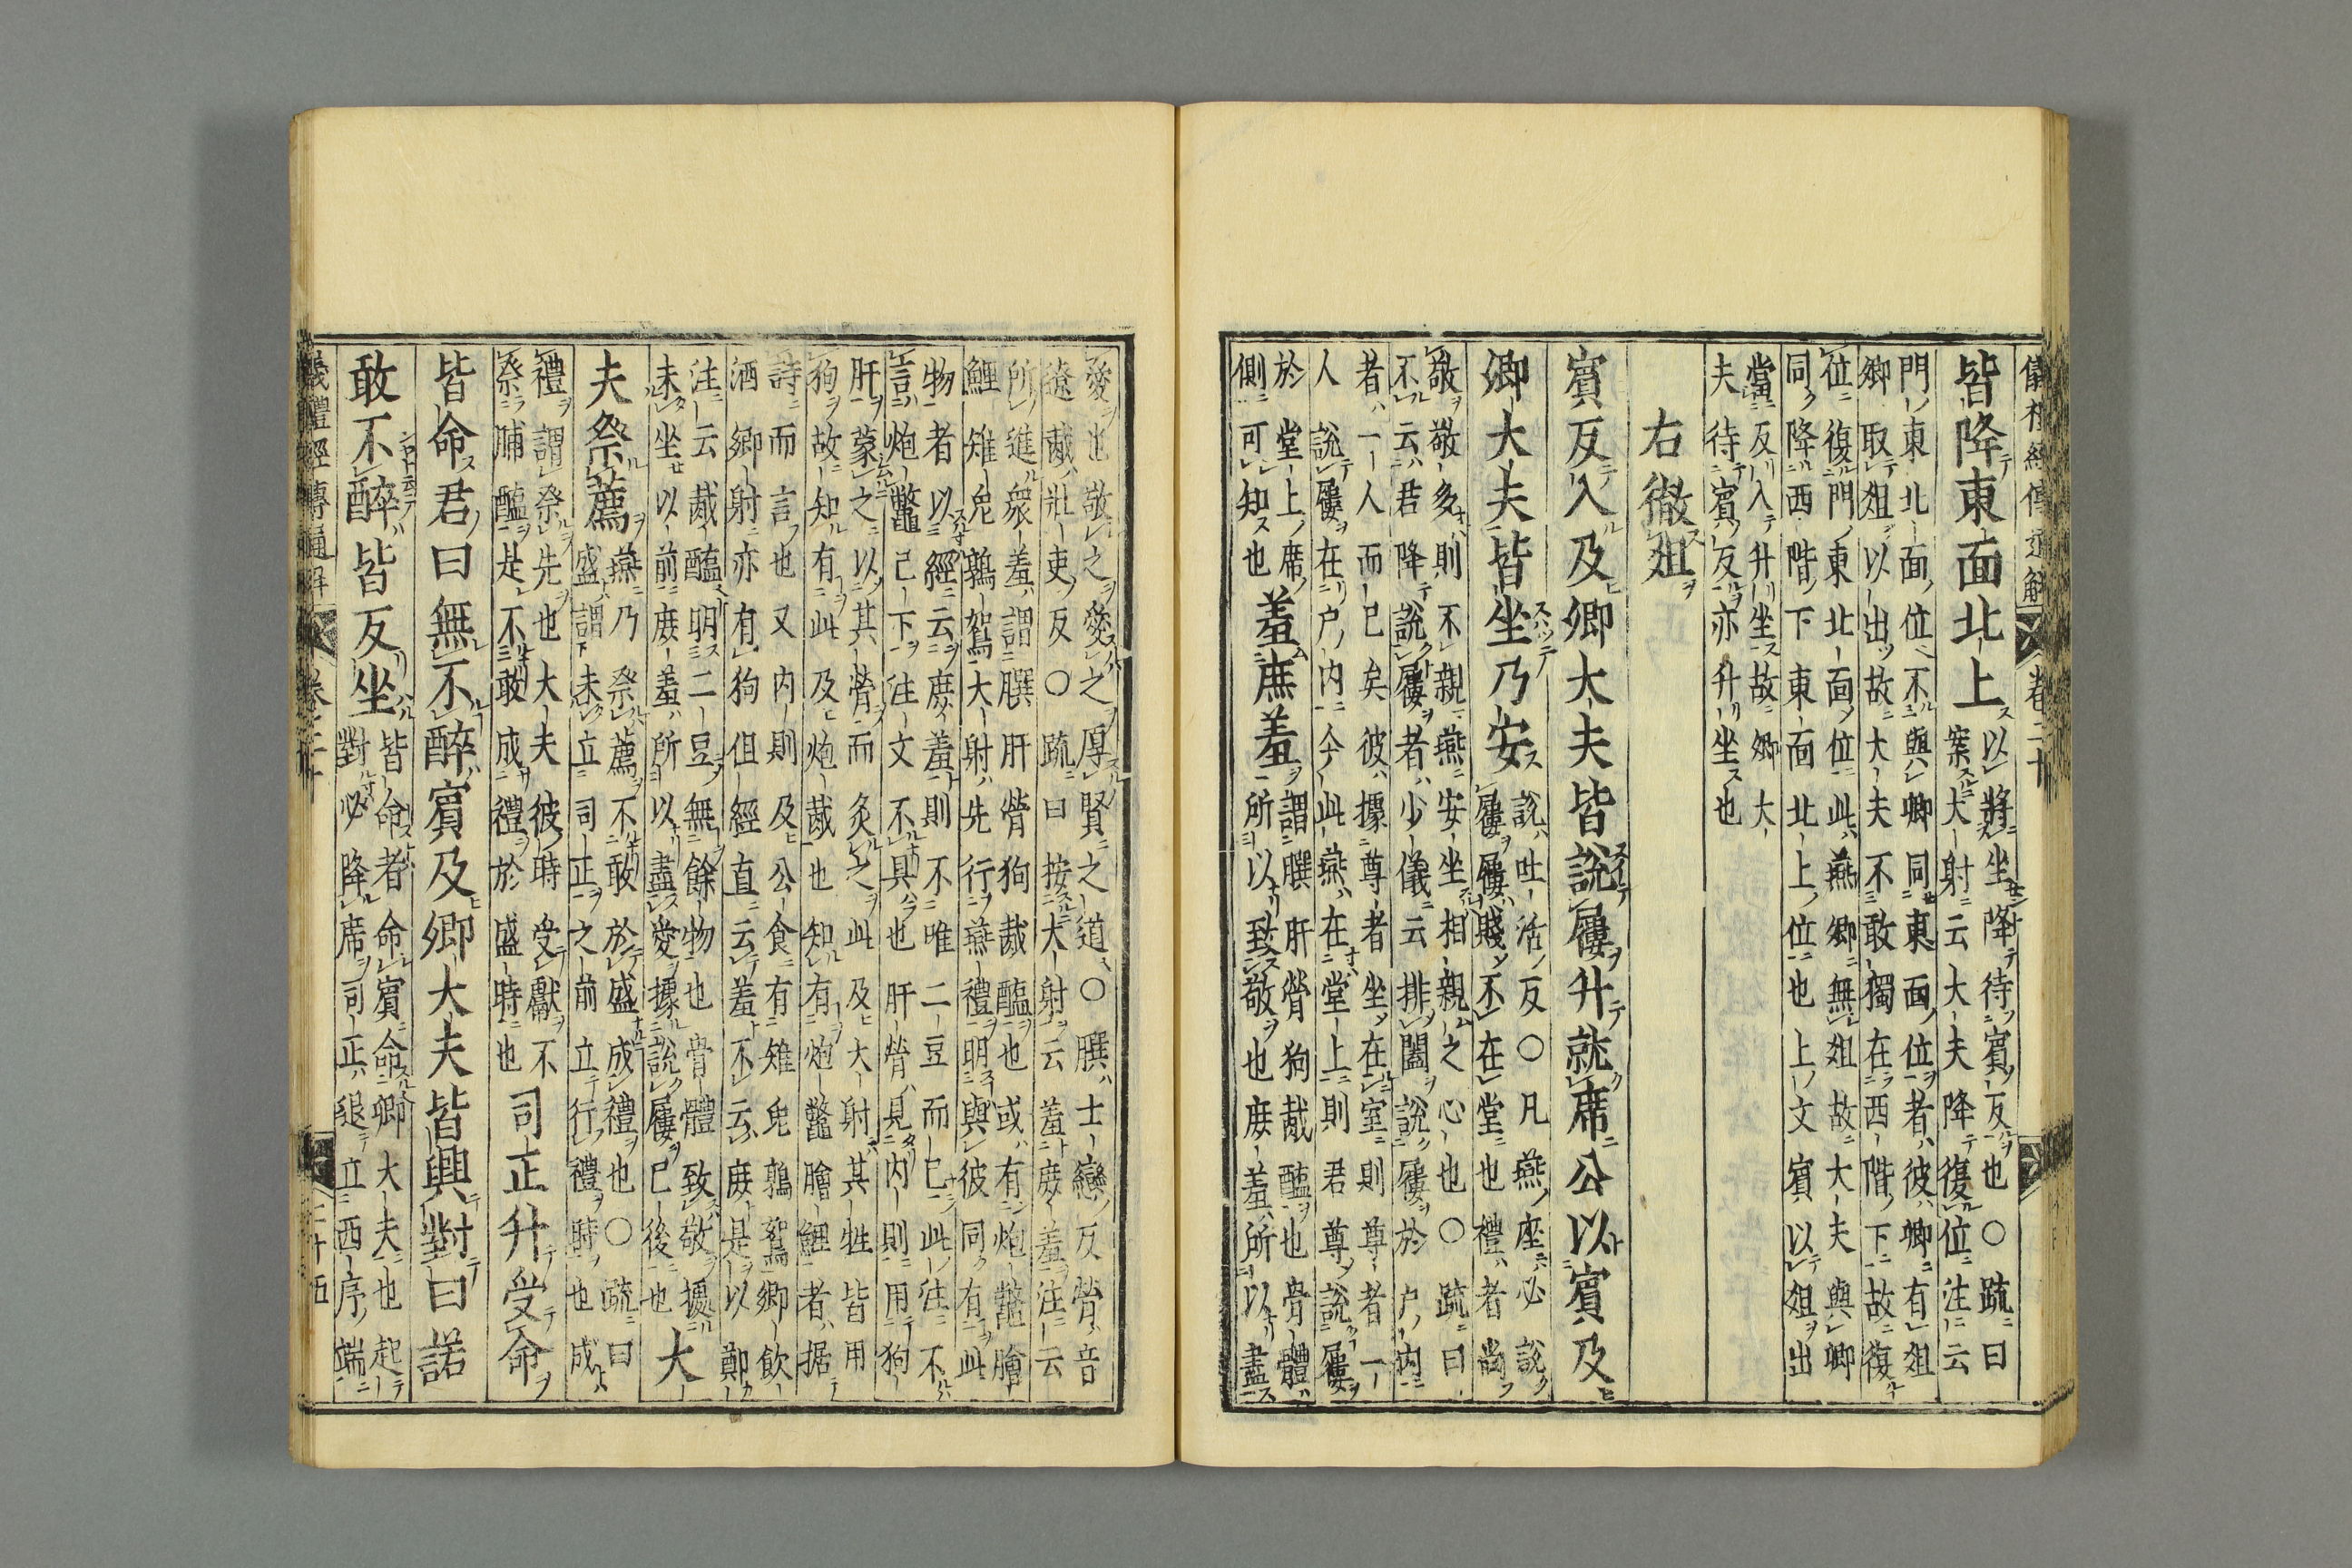 儀禮經傳通解 卷二十
皆降東面北上以將坐降待賓反也○疏曰
案大射云大夫降復位注云
門東北面位不與卿同東面位者彼卿有俎
卿取俎以出故大夫不敢獨在西階下故復
位復門東北面位此燕卿無俎故大夫與卿
同降西階下東面北上位也上文賓以俎出
當反入升坐故卿大
夫待賓反亦升坐也
右徹俎
賓反入及卿大夫皆說屨升就席公以賓及
卿大夫皆坐乃安說吐活反○凡燕座必說
屨屨賤不在堂也禮者尚
敬敬多則不親燕安坐相親之心也○疏曰
不云君降說屨者少儀云排闔說屨於户内
者一人而已矣彼據尊者坐在室則尊者一
人說屨在户内今此燕在堂上則君尊說屨
於堂上席
側可知也羞庶羞謂膷肝膋狗胾醢也骨體
所以致敬也庶羞所以盡
愛也敬之愛之厚賢之道○膷士戀反膋音
遼胾壯吏反○疏曰按大射云羞庶羞注云
所進衆羞謂膷肝膋狗胾醢也或有炮鼈膾
鯉雉兔鶉鴽大射先行燕禮明與彼同有此
物者以經云庶羞則不唯二豆而已此注不
言炮鼈已下注文不具也肝膋見内則用狗
肝蒙之以其膋而炙之此及大射其牲皆用
狗故知有此及炮胾也知有炮鼈膾鯉者据
詩而言也又内則及公食有雉兔鶉鴽卿飲
酒卿射亦有狗但經直云羞不云庶是以鄭
注云胾醢明二豆無餘物也骨體致敬據
未坐以前庶羞所以盡愛據說屨已後也大
夫祭薦燕乃祭薦不敢於盛成禮也○疏曰
盛謂未立司正之前立行禮時也成
禮謂祭先也大夫彼時受獻不
祭脯醢是不敢成禮於盛時也司正升受命
皆命君曰無不醉賓及卿大夫皆興對曰諾
敢不醉皆反坐皆命者命賓命卿大夫也起
對必降席司正退立西序端
儀禮經傳通解 卷二十 二十五